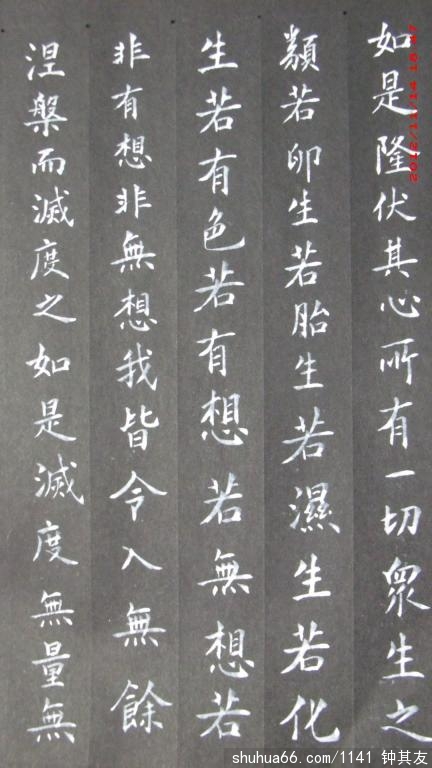 如是隆伏其心所有一切眾生之
類若卵生若胎生若濕生若化
生若有色若有想若無想若
非有想非無想我皆令入無餘
涅槃而滅度之如是滅度無量無
shuhua66.com/1141 钟其友